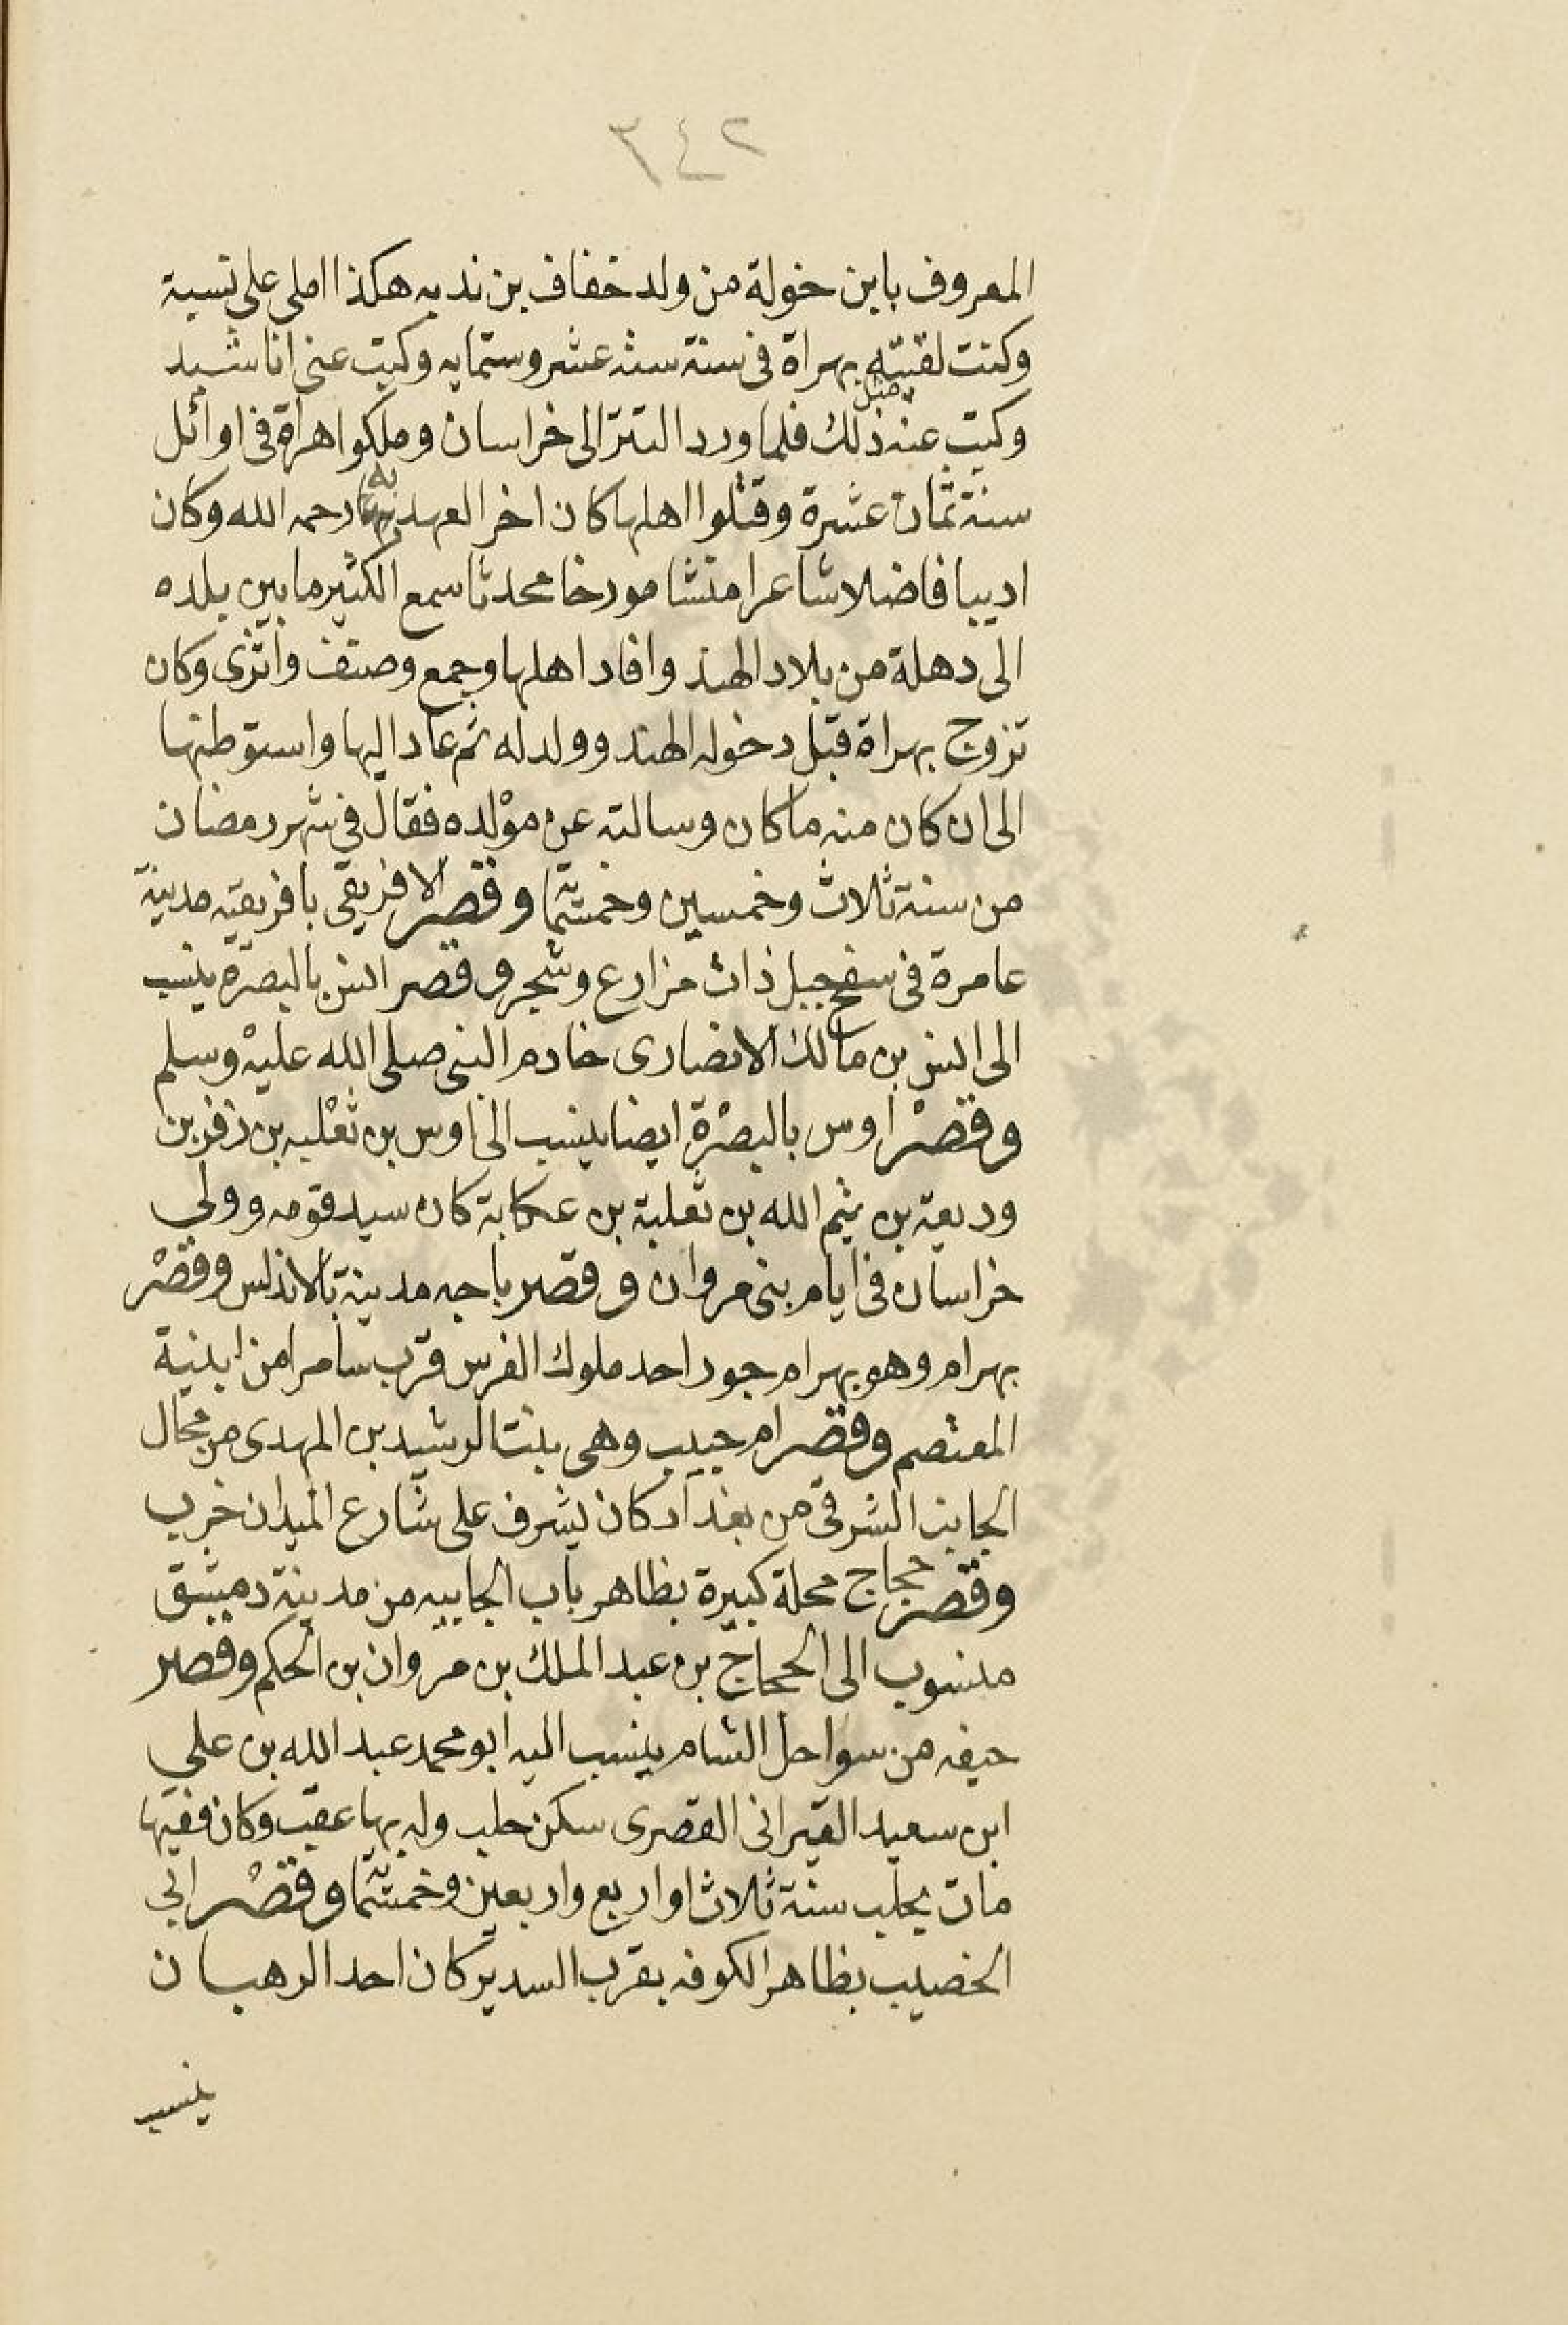 ٣٤٢
المعروف بابن خولة من ولد خفاف بن ندبه هكذا املى على نسبة
وكنت لقيته بهراة فى سنة ستة عشر وستمايه وكتبت عنى اناشيد
وكتبت عنه قبل ذلك فلما ورد التتر الى خراسان وملكوا هراة فى اوائل
سنة ثمان عشرة وقتلوا اهلها كان اخر العهد به رحمه الله وكان
اديبا فاضلا شاعرا منشا مورخا محدثا سمع الكثير ما بين بلده
الى دهلة من بلاد الهند وافاد اهلها وجمع وصنف واثرى وكان
تزوج بهراة قبل دخوله الهند وولد له ثم عاد اليها واستوطنها
الى ان كان منه ما كان وسالته عن مولده فقال فى شهر رمضان
من سنة ثلاث وخمسين وخمسمائة وقصر الافريقى بافريقيه مدينة
عامرة فى سفح جبل ذات مزارع وشجر وقصر انس بالبصرة ينسب
الى انس بن مالك الانصارى خادم النبى صلى الله عليه وسلم
وقصر اوس بالبصرة ايضا ينسب الى اوس بن ثعلبه بن زفر بن
وديعة بن تيم الله بن ثعلبة بن عكابة كان سيد قومه وولي
خراسان فى ايام بنى مروان وقصر باجه مدينة بالاندلس وقصر
بهرام وهو بهرام جور احد ملوك الفرس قرب سامرا من ابنية
المعتصم وقصر ام حبيب وهى بنت الرشيد بن المهدى من محال
الجانب الشرقى من بغداد كان يشرف على شارع الميدان خرب
وقصر حجاج محلة كبيرة بظاهر باب الجابيه من مدينة دمشق
منسوب الى الحجاج بن عبد الملك بن مروان بن الحكم وقصر
حيفه من سواحل الشام ينسب اليه ابو محمد عبد الله بن علي
ابن سعيد القيرانى القصرى سكن حلب وله بها عقب وكان فقيها
مات بحلب سنة ثلاث او اربع واربعين وخمسمائة وقصر ابي
الخصيب بظاهر الكوفه بقرب السدير كان احد الرهبان
ينسب